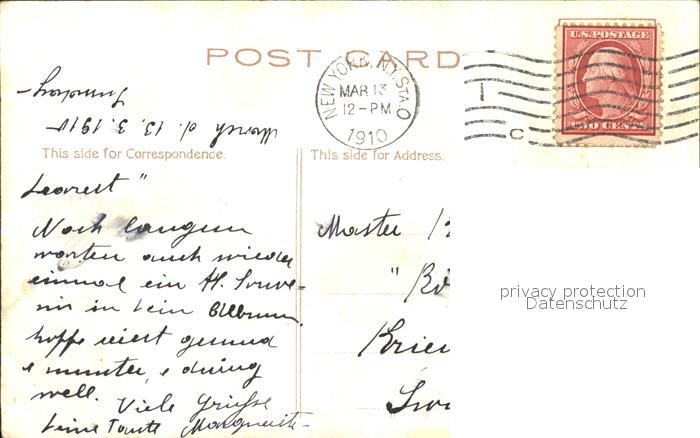 POST CARD
U.S. POSTAGE
TWO CENTS
NEW YORK, N.Y. STA. O
MAR 13
12-PM
1910
C
Sunday
March d. 13. 3. 1910
This side for Correspondence.
This side for Address.
Dearest"
Nach langem
warten auch wieder
einmal ein kl. Souve-
nir in Dein Album.
hoffe seist gesund
& munter, & doing
well. Viele Grüsse
Deine Tante Marguerite-
Master
" 
Brien
privacy protection
Datenschutz